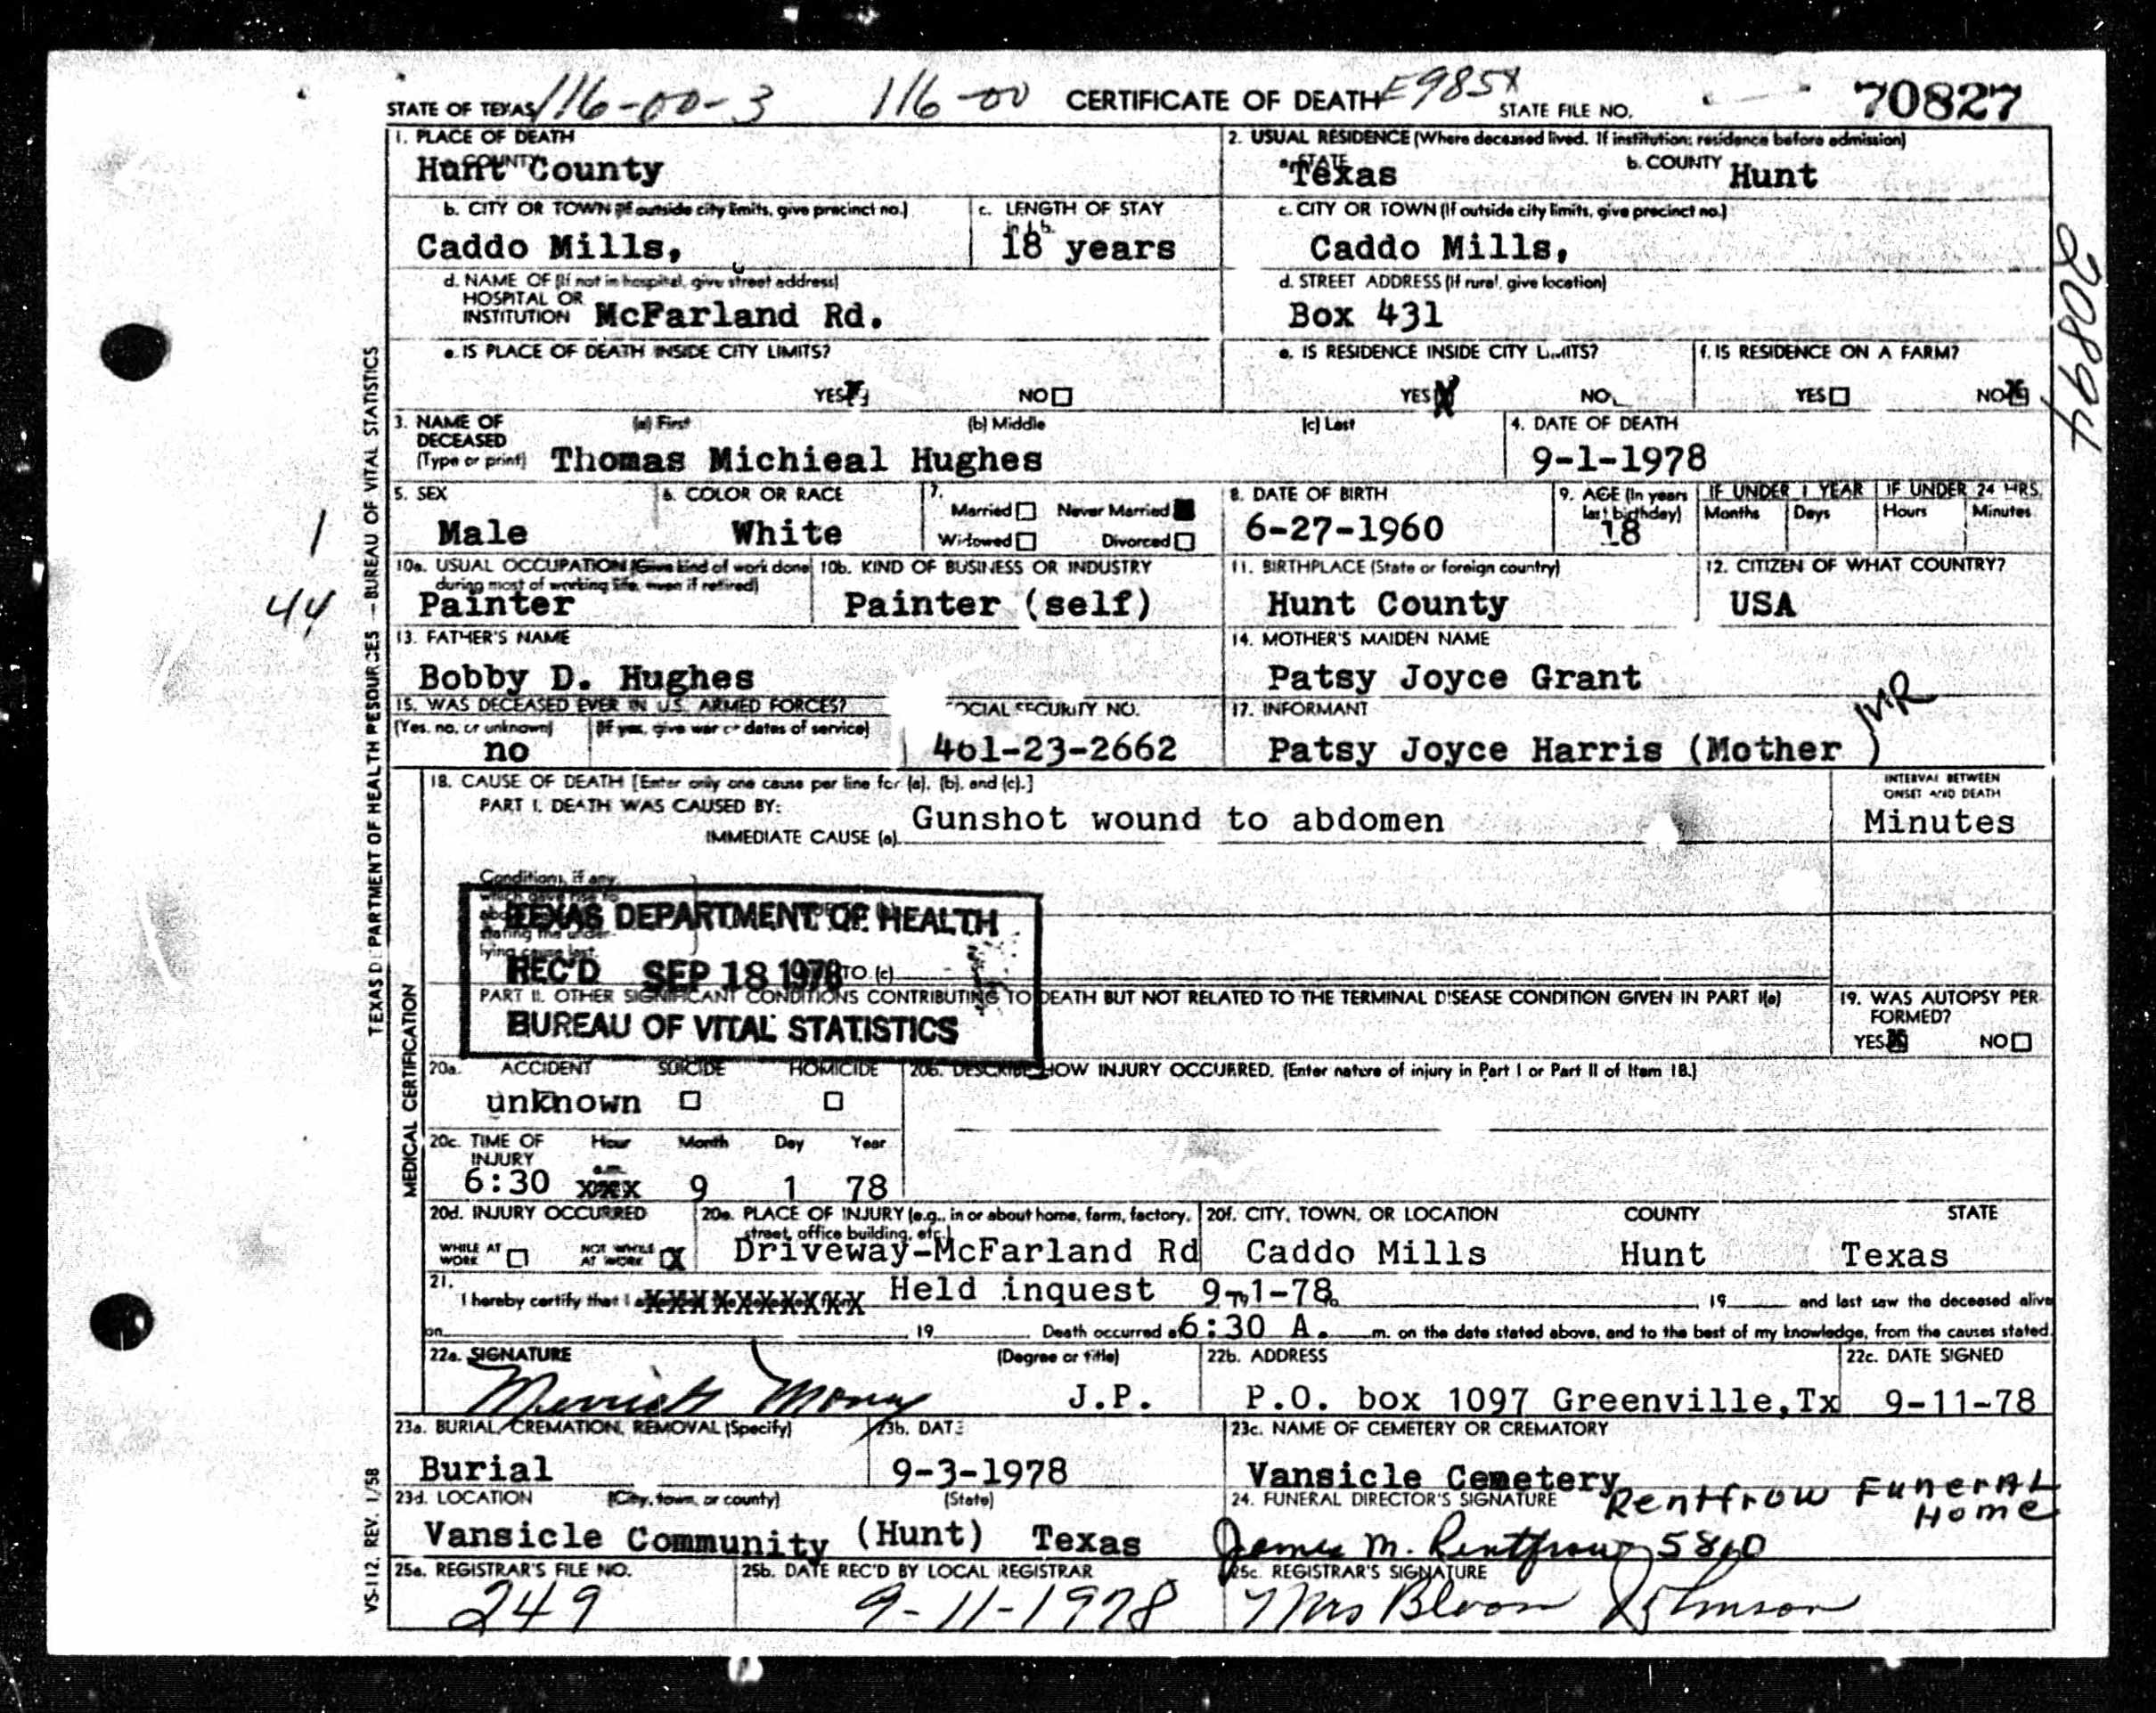 STATE OF TEXAS 116-00-3 116-00 CERTIFICATE OF DEATH E985X STATE FILE NO. 70827
1. PLACE OF DEATH
a. COUNTY Hunt County
2. USUAL RESIDENCE (Where deceased lived. If institution: residence before admission)
a. STATE Texas b. COUNTY Hunt
b. CITY OR TOWN (If outside city limits, give precinct no.)
Caddo Mills,
c. LENGTH OF STAY in 1b.
18 years
c. CITY OR TOWN (If outside city limits, give precinct no.)
Caddo Mills,
d. NAME OF (If not in hospital, give street address)
HOSPITAL OR
INSTITUTION McFarland Rd.
d. STREET ADDRESS (If rural, give location)
Box 431
e. IS PLACE OF DEATH INSIDE CITY LIMITS?
YES NO
e. IS RESIDENCE INSIDE CITY LIMITS?
YES NO
f. IS RESIDENCE ON A FARM?
YES NO
20894
3. NAME OF DECEASED (Type or print)
(a) First (b) Middle (c) Last
Thomas Michieal Hughes
4. DATE OF DEATH
9-1-1978
5. SEX
Male
6. COLOR OR RACE
White
7.
Married Never Married
Widowed Divorced
8. DATE OF BIRTH
6-27-1960
9. AGE (In years last birthday)
18
IF UNDER 1 YEAR
Months Days
IF UNDER 24 HRS.
Hours Minutes
1
44
10a. USUAL OCCUPATION (Give kind of work done during most of working life, even if retired)
Painter
10b. KIND OF BUSINESS OR INDUSTRY
Painter (self)
11. BIRTHPLACE (State or foreign country)
Hunt County
12. CITIZEN OF WHAT COUNTRY?
USA
13. FATHER'S NAME
Bobby D. Hughes
14. MOTHER'S MAIDEN NAME
Patsy Joyce Grant
15. WAS DECEASED EVER IN U.S. ARMED FORCES?
(Yes, no, or unknown) (If yes, give war or dates of service)
no
SOCIAL SECURITY NO.
461-23-2662
17. INFORMANT
Patsy Joyce Harris (Mother )
TEXAS DEPARTMENT OF HEALTH RESOURCES — BUREAU OF VITAL STATISTICS
MEDICAL CERTIFICATION
18. CAUSE OF DEATH [Enter only one cause per line for (a), (b), and (c).]
PART I. DEATH WAS CAUSED BY:
IMMEDIATE CAUSE (a) Gunshot wound to abdomen
INTERVAL BETWEEN ONSET AND DEATH
Minutes
Conditions, if any, which gave rise to
stating the under-
lying cause last.
TO (c)
TEXAS DEPARTMENT OF HEALTH
REC'D SEP 18 1978
BUREAU OF VITAL STATISTICS
PART II. OTHER SIGNIFICANT CONDITIONS CONTRIBUTING TO DEATH BUT NOT RELATED TO THE TERMINAL DISEASE CONDITION GIVEN IN PART I(a)
19. WAS AUTOPSY PERFORMED?
YES NO
20a. ACCIDENT SUICIDE HOMICIDE
unknown
20b. DESCRIBE HOW INJURY OCCURRED. (Enter nature of injury in Part I or Part II of Item 18.)
20c. TIME OF INJURY Hour Month Day Year
6:30 a.m. 9 1 78
20d. INJURY OCCURRED
WHILE AT WORK NOT WHILE AT WORK X
20e. PLACE OF INJURY (e.g., in or about home, farm, factory, street, office building, etc.)
Driveway-McFarland Rd
20f. CITY, TOWN, OR LOCATION COUNTY STATE
Caddo Mills Hunt Texas
21.
I hereby certify that I XXXXXXXXXX Held inquest 9-1-78 , 19 and last saw the deceased alive
on , 19 Death occurred at 6:30 A. m. on the date stated above, and to the best of my knowledge, from the causes stated.
22a. SIGNATURE (Degree or title)
J.P.
22b. ADDRESS
P.O. box 1097 Greenville,Tx
22c. DATE SIGNED
9-11-78
23a. BURIAL, CREMATION, REMOVAL (Specify)
Burial
23b. DATE
9-3-1978
23c. NAME OF CEMETERY OR CREMATORY
Vansicle Cemetery
23d. LOCATION (City, town, or county) (State)
Vansicle Community (Hunt) Texas
24. FUNERAL DIRECTOR'S SIGNATURE Rentfrow Funeral Home
James M. Rentfrow 5860
25a. REGISTRAR'S FILE NO.
249
25b. DATE REC'D BY LOCAL REGISTRAR
9-11-1978
25c. REGISTRAR'S SIGNATURE
Mrs Johnson
VS-112. REV. 1/58